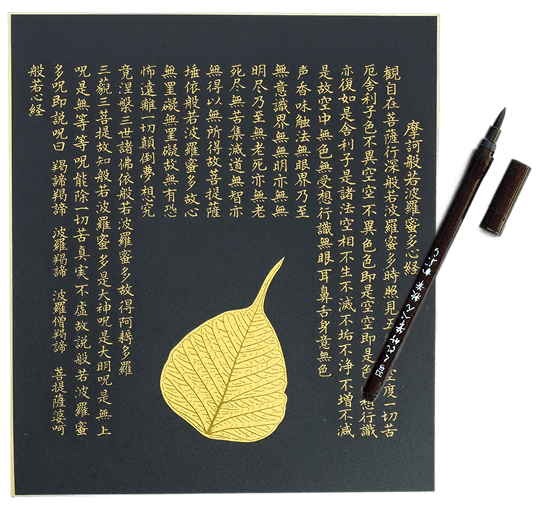 摩訶般若波羅蜜多心経
観自在菩薩行深般若波羅蜜多時照見五空度一切苦
厄舎利子色不異空空不異色色即是空空即是色想行識
亦復如是舎利子是諸法空相不生不滅不垢不浄不増不減
是故空中無色無受想行識無眼耳鼻舌身意無色
声香味触法無眼界乃至
無意識界無無明亦無無
明尽乃至無老死亦無老
死尽無苦集滅道無智亦
無得以無所得故菩提薩
埵依般若波羅蜜多故心
無罣礙無罣礙故無有恐
怖遠離一切顛倒夢想究
竟涅槃三世諸佛依般若波羅蜜多故得阿耨多羅
三藐三菩提故知般若波羅蜜多是大神呪是大明呪是無上
呪是無等等呪能除一切苦真実不虚故説般若波羅蜜
多呪即説呪曰 羯諦羯諦 波羅羯諦 波羅僧羯諦 菩提薩婆呵
般若心経